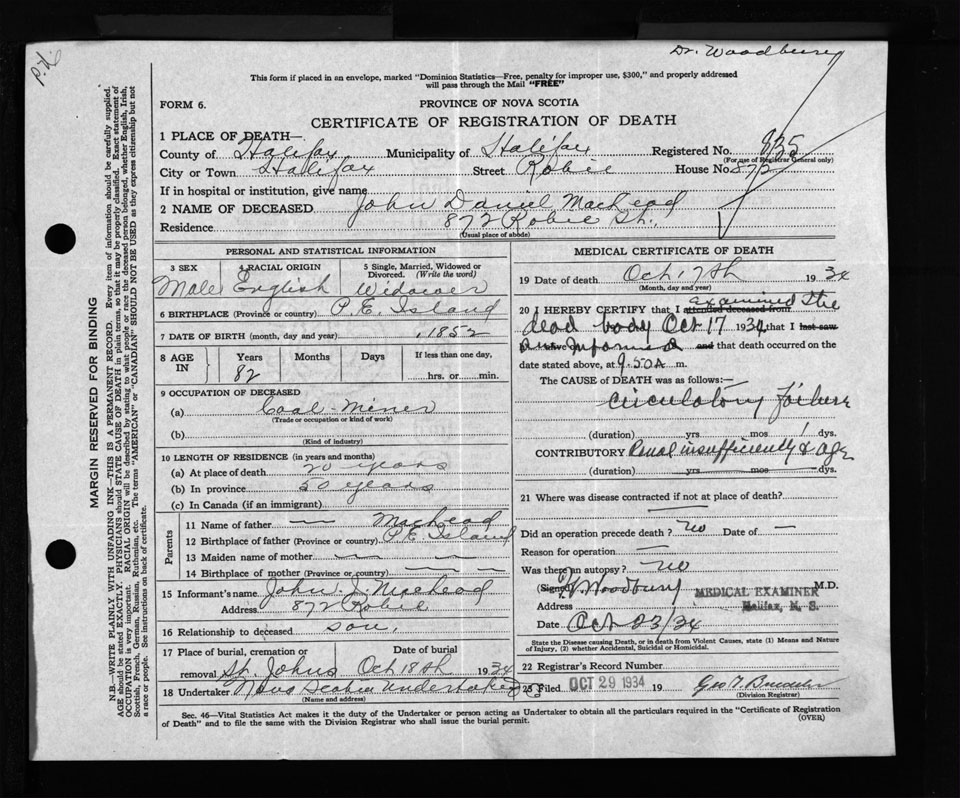 Dr. Woodbury
This form if placed in an envelope, marked "Dominion Statistics—Free, penalty for improper use, $300," and properly addressed
will pass through the Mail "FREE"
FORM 6.
PROVINCE OF NOVA SCOTIA
CERTIFICATE OF REGISTRATION OF DEATH
1 PLACE OF DEATH—
County of Halifax Municipality of Halifax Registered No. 835
(For use of Registrar General only)
City or Town Halifax Street Robie House No. 872
If in hospital or institution, give name
2 NAME OF DECEASED John Daniel MacLeod
Residence 872 Robie St.
(Usual place of abode)
PERSONAL AND STATISTICAL INFORMATION
3 SEX 4 RACIAL ORIGIN 5 Single, Married, Widowed or Divorced. (Write the word)
Male English Widower
6 BIRTHPLACE (Province or country) P.E. Island
7 DATE OF BIRTH (month, day and year) , 1852
8 AGE IN Years Months Days If less than one day,
82 hrs. or min.
9 OCCUPATION OF DECEASED
(a) Coal-Miner
(Trade or occupation or kind of work)
(b)
(Kind of industry)
10 LENGTH OF RESIDENCE (in years and months)
(a) At place of death 20 years
(b) In province 50 years
(c) In Canada (if an immigrant)
Parents
11 Name of father — MacLeod
12 Birthplace of father (Province or country) P.E. Island
13 Maiden name of mother — —
14 Birthplace of mother (Province or country) — —
15 Informant's name John J. MacLeod
Address 872 Robie
16 Relationship to deceased son.
17 Place of burial, cremation or removal Date of burial
St. Johns Oct 18th 1934
18 Undertaker Nova Scotia Undertaker
(Name and address)
MEDICAL CERTIFICATE OF DEATH
19 Date of death Oct 17th 1934
(Month, day and year)
20 I HEREBY CERTIFY that I attended deceased from examined the
dead body Oct 17 1934 that I last saw
informed and that death occurred on the
date stated above, at 9.50 A m.
The CAUSE of DEATH was as follows:—
Circulatory Failure
(duration) yrs mos 1 dys.
CONTRIBUTORY Renal insufficiency & age
(duration) yrs mos dys.
21 Where was disease contracted if not at place of death?
—
Did an operation precede death? no Date of —
Reason for operation —
Was there an autopsy? no
(Signed) Woodbury M.D.
MEDICAL EXAMINER
Address Halifax, N. S.
Date Oct 23/34
State the Disease causing Death, or in death from Violent Causes, state (1) Means and Nature
of Injury, (2) whether Accidental, Suicidal or Homicidal.
22 Registrar's Record Number
23 Filed OCT 29 1934 19
(Division Registrar)
Sec. 46—Vital Statistics Act makes it the duty of the Undertaker or person acting as Undertaker to obtain all the particulars required in the "Certificate of Registration
of Death" and to file the same with the Division Registrar who shall issue the burial permit. (OVER)
MARGIN RESERVED FOR BINDING
N.B.—WRITE PLAINLY WITH UNFADING INK—THIS IS A PERMANENT RECORD. Every item of information should be carefully supplied.
AGE should be stated EXACTLY. PHYSICIANS should STATE CAUSE OF DEATH in plain terms, so that it may be properly classified. Exact statement of
OCCUPATION is very important. RACIAL ORIGIN will be described by stating to what people or race the deceased person belonged, whether English, Irish,
Scottish, French, German, Russian, Ruthenian, etc. The terms "AMERICAN" or "CANADIAN" SHOULD NOT BE USED as they express citizenship but not
a race or people. See instructions on back of certificate.